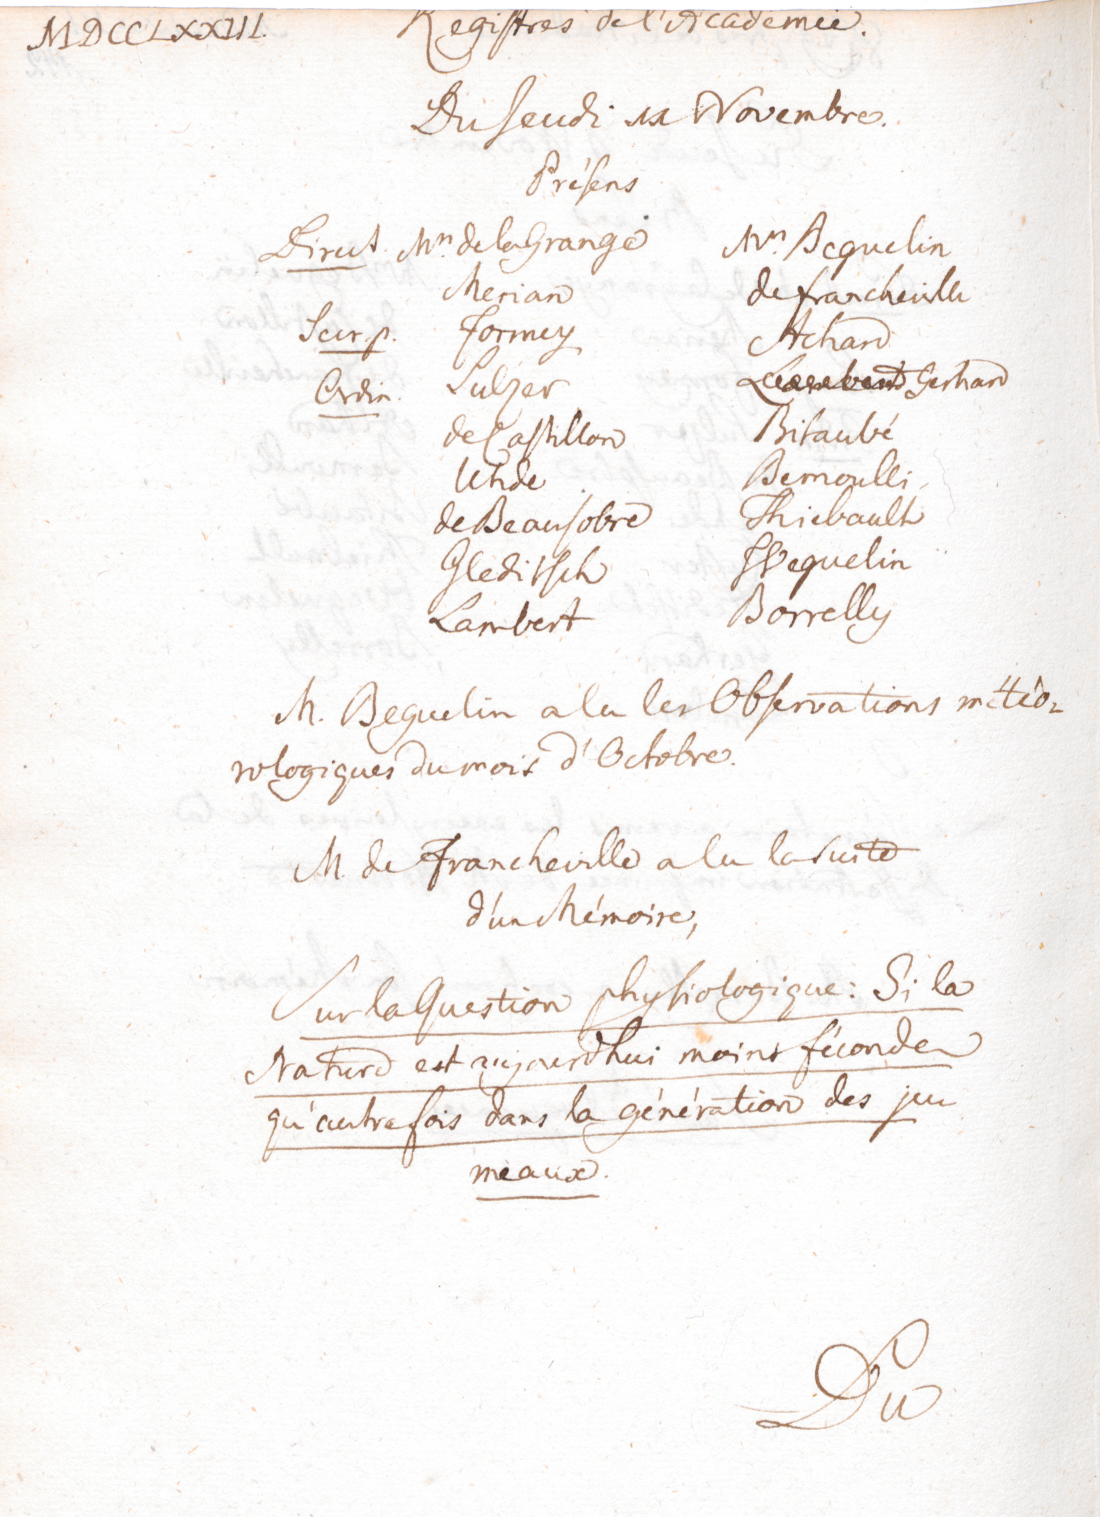 MDCCLXXIII. Registres de l'Academie.
Du Jeudi 11 Novembre.
Présens
Direct. Mrs de la Grange Mrs Beguelin
Merian de Francheville
Secr. p. Formey Achard
Ordin. Sulzer Gerhard
de Castillon Bitaubé
Uhde Bernoulli
de Beausobre Thiebault
Gleditsch Weguelin
Lambert Borrelly
M. Beguelin a lu les Observations météo-
rologiques du mois d'Octobre.
M. de Francheville a lu la suite
d'un Mémoire,
Sur la Question physiologique: Si la
Nature est aujourd'hui moins féconde
qu'autrefois dans la génération des ju
meaux.
Du